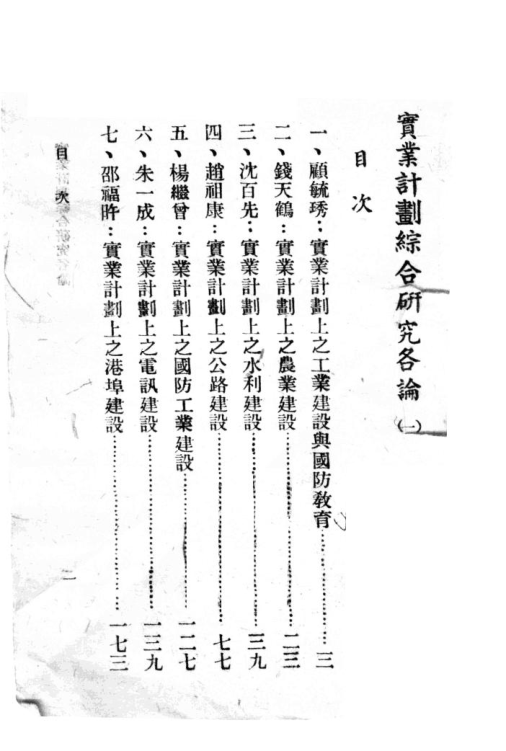 實業計劃綜合研究各論(一)
目次
一、顧毓琇：實業計劃上之工業建設與國防教育……三
二、錢天鶴：實業計劃上之農業建設……二三
三、沈百先：實業計劃上之水利建設……三九
四、趙祖康：實業計劃上之公路建設……七七
五、楊繼曾：實業計劃上之國防工業建設……一二七
六、朱一成：實業計劃上之電訊建設……一三九
七、邵福旿：實業計劃上之港埠建設……一七三
目次